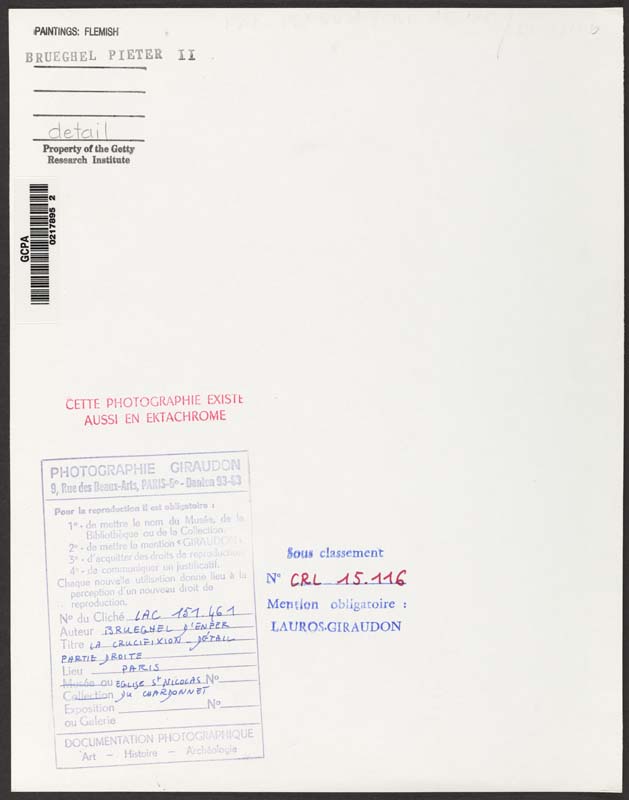 PAINTINGS: FLEMISH
BRUEGHEL PIETER II
detail
Property of the Getty
Research Institute
GCPA
0217895 2
CETTE PHOTOGRAPHIE EXISTE
AUSSI EN EKTACHROME
PHOTOGRAPHIE GIRAUDON
9, Rue des Beaux-Arts, PARIS-6e - Danton 93-63
Pour la reproduction il est obligatoire :
1° - de mettre le nom du Musée, de la
Bibliothèque ou de la Collection.
2° - de mettre la mention « GIRAUDON »
3° - d'acquitter des droits de reproduction
4° - de communiquer un justificatif.
Chaque nouvelle utilisation donne lieu à la
perception d'un nouveau droit de
reproduction.
N° du Cliché LAC 151.461
Auteur BRUEGHEL D'ENFER
Titre LA CRUCIFIXION - DÉTAIL
PARTIE DROITE
Lieu PARIS
Musée ou EGLISE St NICOLAS N°
Collection DU CHARDONNET
Exposition N°
ou Galerie
DOCUMENTATION PHOTOGRAPHIQUE
Art - Histoire - Archéologie
Sous classement
N° CRL 15.116
Mention obligatoire :
LAUROS-GIRAUDON